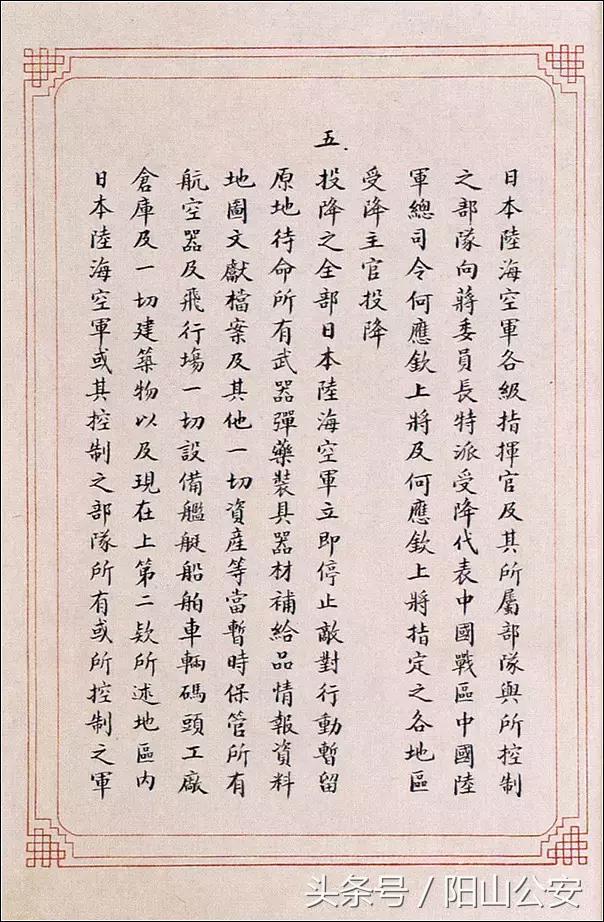 日本陸海空軍各級指揮官及其所屬部隊與所控制
之部隊向蔣委員長特派受降代表中國戰區中國陸
軍總司令何應欽上將及何應欽上將指定之各地區
受降主官投降
五.
投降之全部日本陸海空軍立即停止敵對行動暫留
原地待命所有武器彈藥裝具器材補給品情報資料
地圖文獻檔案及其他一切資產等當暫時保管所有
航空器及飛行場一切設備艦艇船舶車輛碼頭工廠
倉庫及一切建築物以及現在上第二欵所述地區內
日本陸海空軍或其控制之部隊所有或所控制之軍
头条号 / 阳山公安